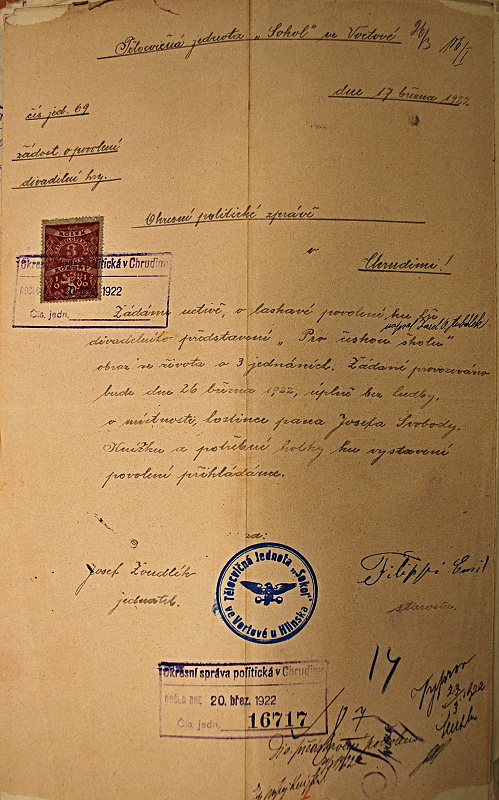 Tělocvičná jednota „Sokol" ve Vortové
26/3
dne 17 března 1922.
čís. jed. 69
žádost o povolení
divadelní hry.
Okresní politické správě
v
Chrudimi!
KOLEK
3
Okresní politická v Chrudimi
1922
Čís. jedn.
Žádáme uctivě, o laskavé povolení ku hře
napsal Karel O. Hubálek
divadelního představení „Pro českou školu"
obraz ze života o 3 jednáních. Žádané provozováno
bude dne 26 března 1922, úplně bez hudby,
v místnosti, hostince pana Josefa Svobody.
Knížku a potřebné kolky ku vystavení
povolení přikládáme.
za:
Josef Zvudlík
Filippi Emil
jednatel.
starosta.
Tělocvičná Jednota „Sokol"
ve Vortové u Hlinska
Okresní správa politická v Chrudimi
DOŠLO DNE 20. břez. 1922
Čís. jedn. 16717
17
23/3 1922